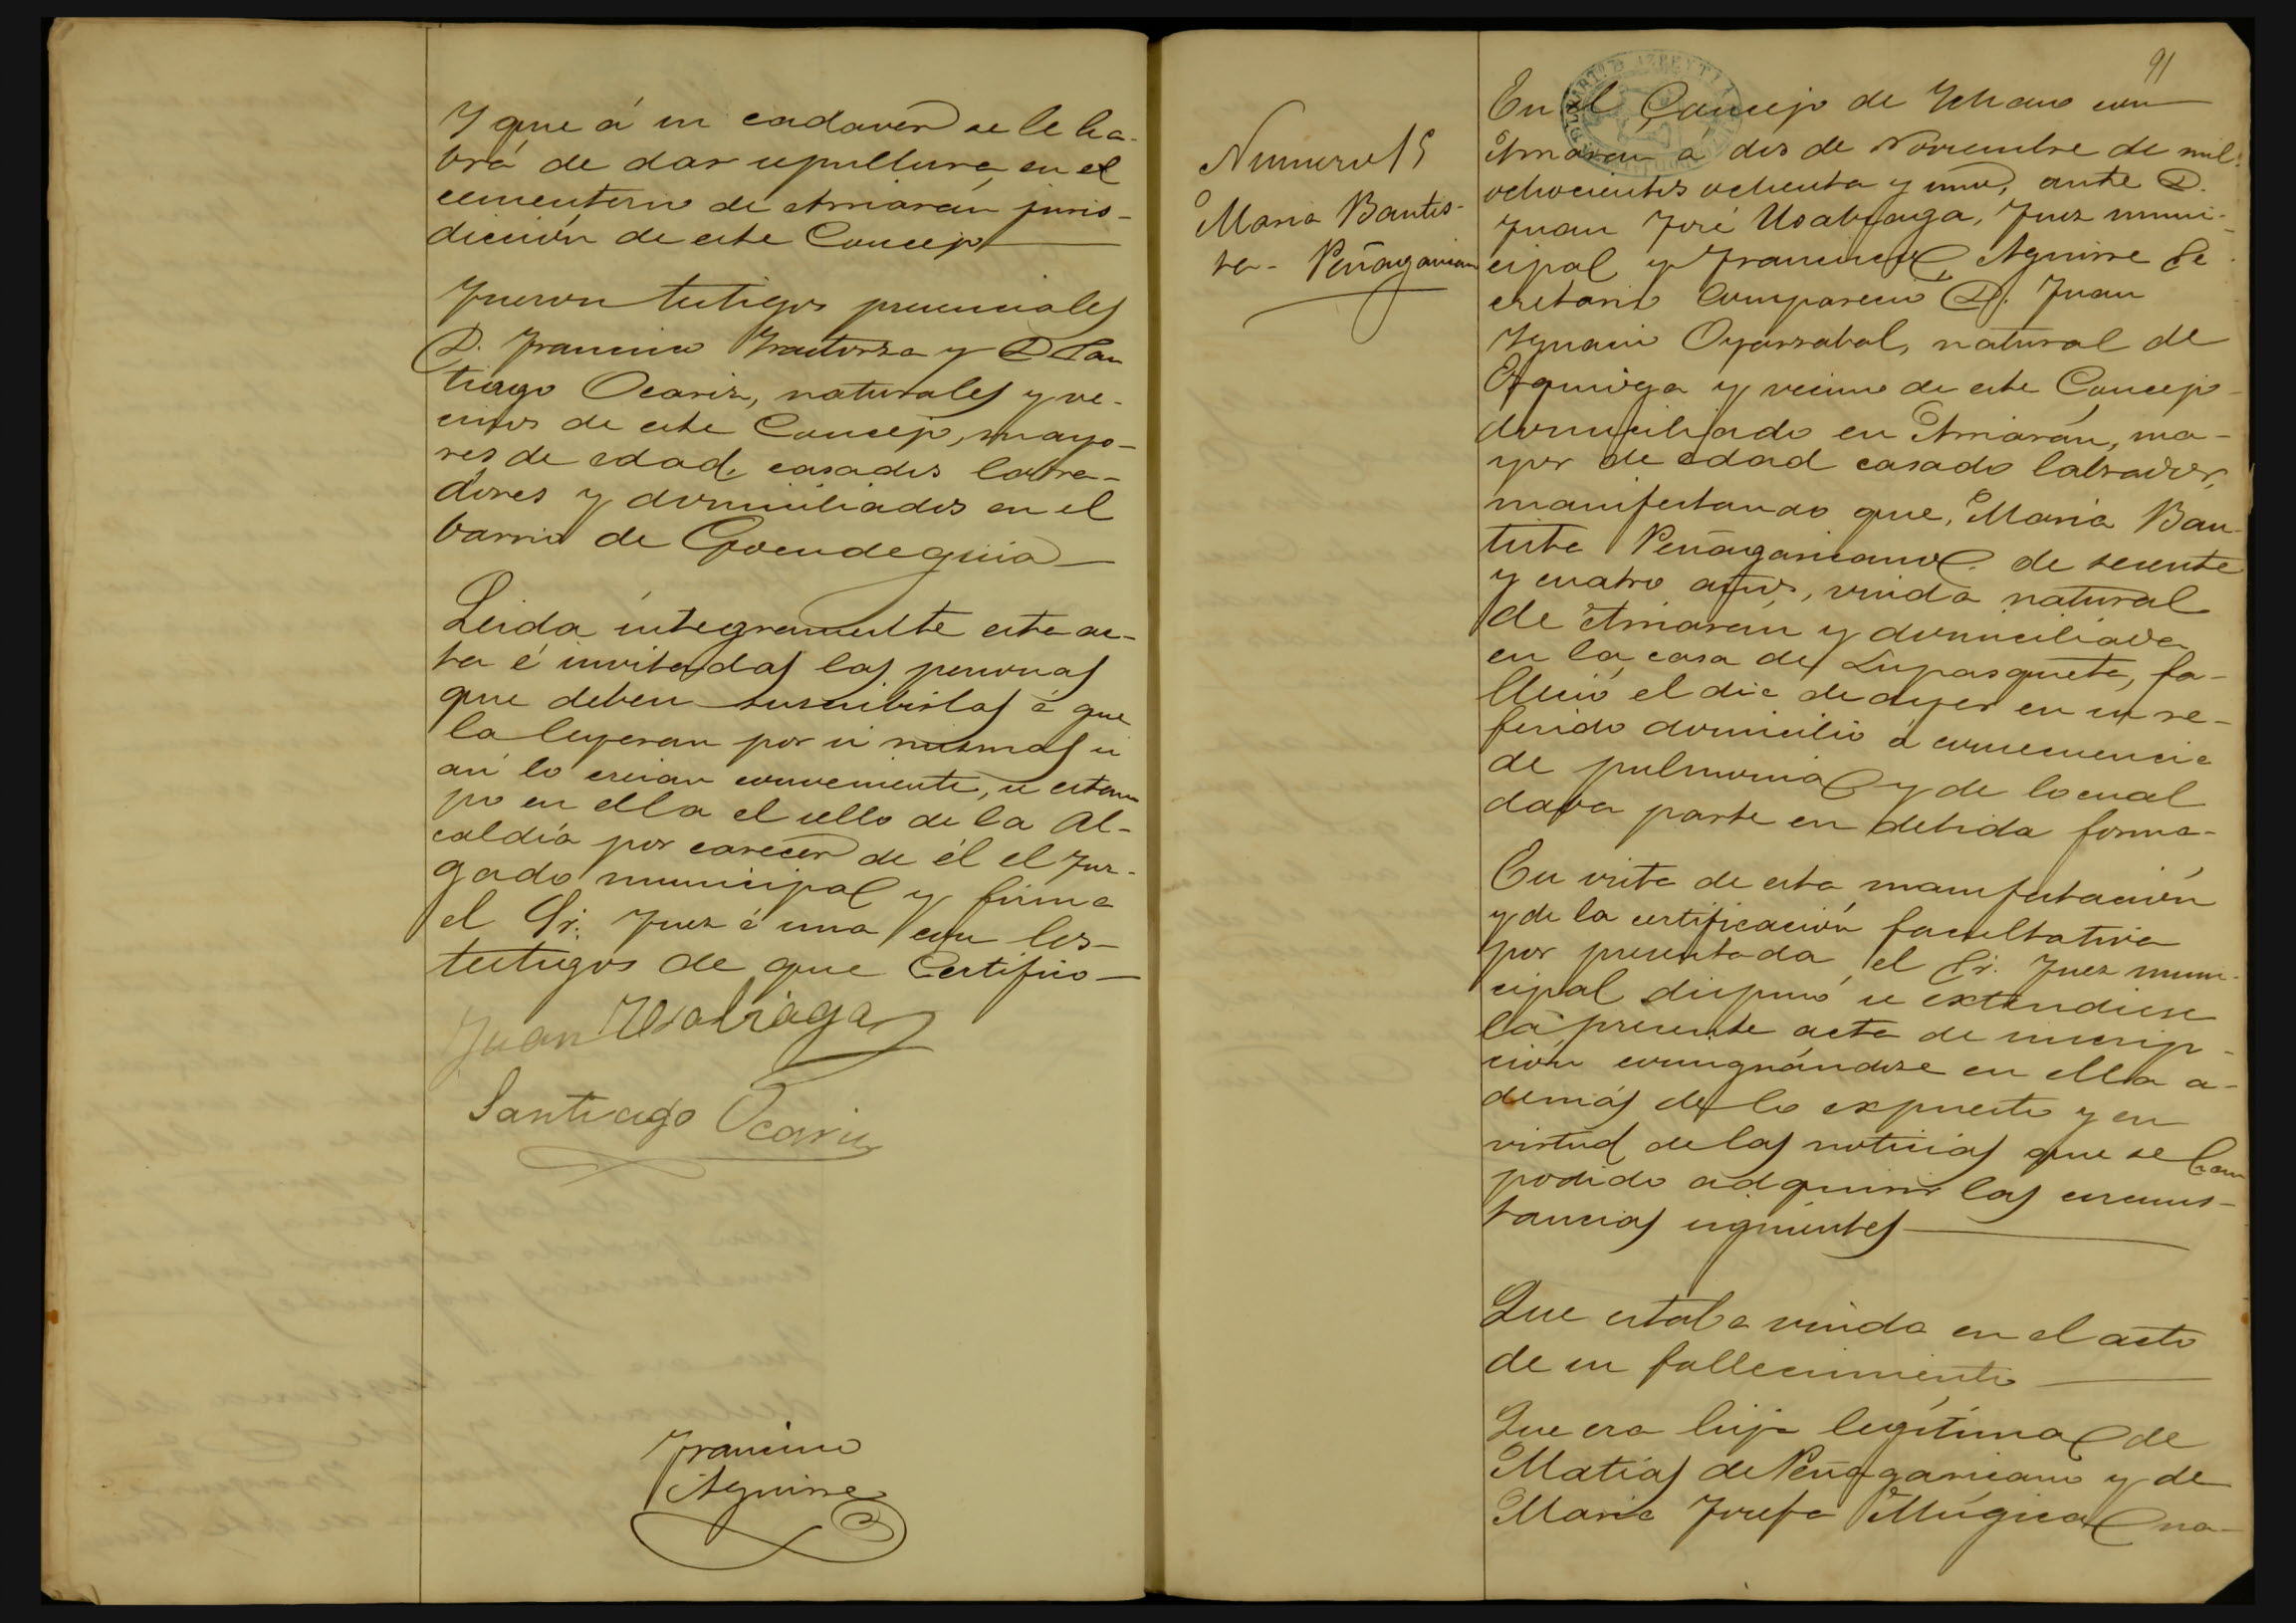 Y que á su cadaver se le ha-
brá de dar sepultura en el
cementerio de Arriarán juris-
dicción de este Concejo
Fueron testigos presenciales
D. Francisco Irastorza y D. San
tiago Ocariz, naturales y ve-
cinos de este Concejo, mayo-
res de edad, casados labra-
dores y domiciliados en el
barrio de Goendeguia
Leida integramente esta ac-
ta é invitadas las personas
que deben suscribirlas á que
la leyeran por si mismas si
asi lo creian conveniente, se estam
po en ella el sello de la Al-
caldía por carecer de él el Juz-
gado municipal y firma
el Sr. Juez é una con los
testigos de que Certifico
Juan Usabiaga
Santiago Ocariz
Francisco
Aguirre
91
Numero 15
Maria Bautis-
ta - Peñagarican
En el Concejo de Ichaso con
Arriaran á dos de Noviembre de mil
ochocientos ochenta y uno, ante D.
Juan José Usabiaga, Juez muni-
cipal y Francisco Aguirre Se
cretario Compareció D. Juan
Ygnacio Oyarzabal, natural de
Ezquioga y vecino de este Concejo
domiciliado en Arriarán, ma-
yor de edad casado labrador,
manifestando que, Maria Bau
tista Peñagaricano de setenta
y cuatro años, viuda natural
de Arriarán y domiciliada
en la casa de Lupasqueta, fa-
lleció el dia de ayer en su re-
ferido domicilio á consecuencia
de pulmonia y de lo cual
daba parte en debida forma-
En vista de esta manifestación
y de la certificación facultativa
por presentada el Sr. Juez muni-
cipal dispuso se extendiese
la presente acta de inscrip-
ción consignándose en ella a-
demás de lo expuesto y en
virtud de las noticias que se han
podido adquirir las circuns-
tancias siguientes
Que estaba viuda en el acto
de su fallecimiento
Que era hija legítima de
Matias de Peñagaricano y de
Maria Josefa Múgica na-